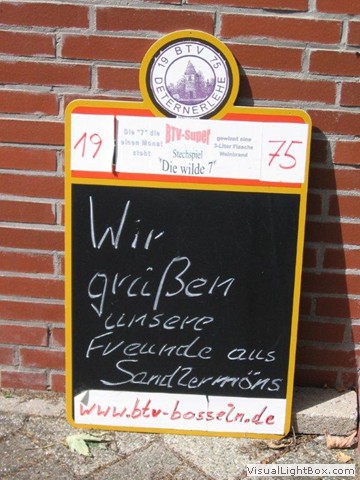 19 BTV 75
DETERNERLEHE
19
Die "7" die
einen Monat
steht
BTV-Super
Stechspiel
"Die wilde 7"
gewinnt eine
3-Liter Flasche
Weinbrand
75
Wir
grüßen
unsere
Freunde aus
Sandlermöns
www.btv-bosseln.de
VisualLightBox.com